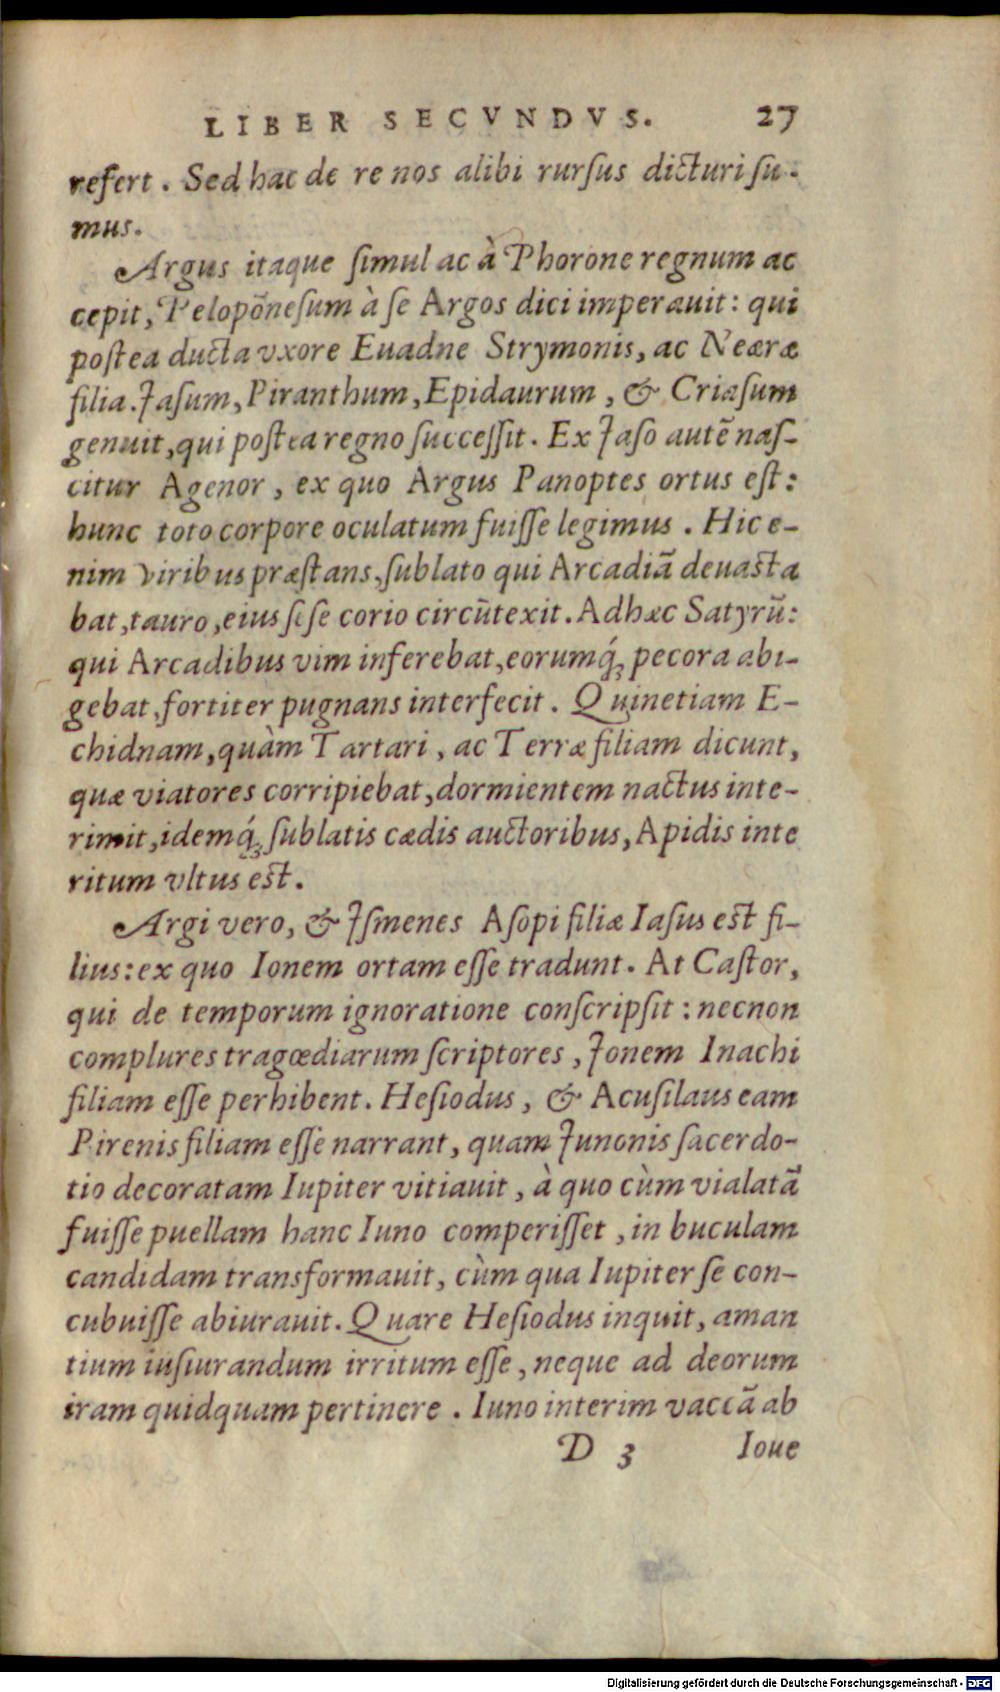 LIBER SECVNDVS. 27
refert. Sed hac de re nos alibi rurſus dicturi ſu-
mus.
Argus itaque ſimul ac à Phorone regnum ac
cepit, Pelopõneſum à ſe Argos dici imperauit: qui
poſtea ducta vxore Euadne Strymonis, ac Neæræ
filia. Jaſum, Piranthum, Epidaurum, & Criaſum
genuit, qui poſtea regno ſucceſſit. Ex Jaſo autẽ naſ-
citur Agenor, ex quo Argus Panoptes ortus eſt:
hunc toto corpore oculatum fuiſſe legimus. Hic e-
nim viribus præſtans, ſublato qui Arcadiã deuaſta
bat, tauro, eius ſeſe corio circũtexit. Adhæc Satyrũ:
qui Arcadibus vim inferebat, eorumq́; pecora abi-
gebat, fortiter pugnans interfecit. Quinetiam E-
chidnam, quàm Tartari, ac Terræ filiam dicunt,
quæ viatores corripiebat, dormientem nactus inte-
rimit, idemq́; ſublatis cædis auctoribus, Apidis inte
ritum vltus eſt.
Argi vero, & Jſmenes Aſopi filiæ Iaſus eſt fi-
lius: ex quo Ionem ortam eſſe tradunt. At Caſtor,
qui de temporum ignoratione conſcripſit: necnon
complures tragœdiarum ſcriptores, Jonem Inachi
filiam eſſe perhibent. Heſiodus, & Acuſilaus eam
Pirenis filiam eſſe narrant, quam Junonis ſacerdo-
tio decoratam Iupiter vitiauit, à quo cùm vialatã
fuiſſe puellam hanc Iuno comperiſſet, in buculam
candidam transformauit, cùm qua Iupiter ſe con-
cubuiſſe abiurauit. Quare Heſiodus inquit, aman
tium iuſiurandum irritum eſſe, neque ad deorum
iram quidquam pertinere. Iuno interim vaccã ab
D 3 Ioue
Digitalisierung gefördert durch die Deutsche Forschungsgemeinschaft - DFG